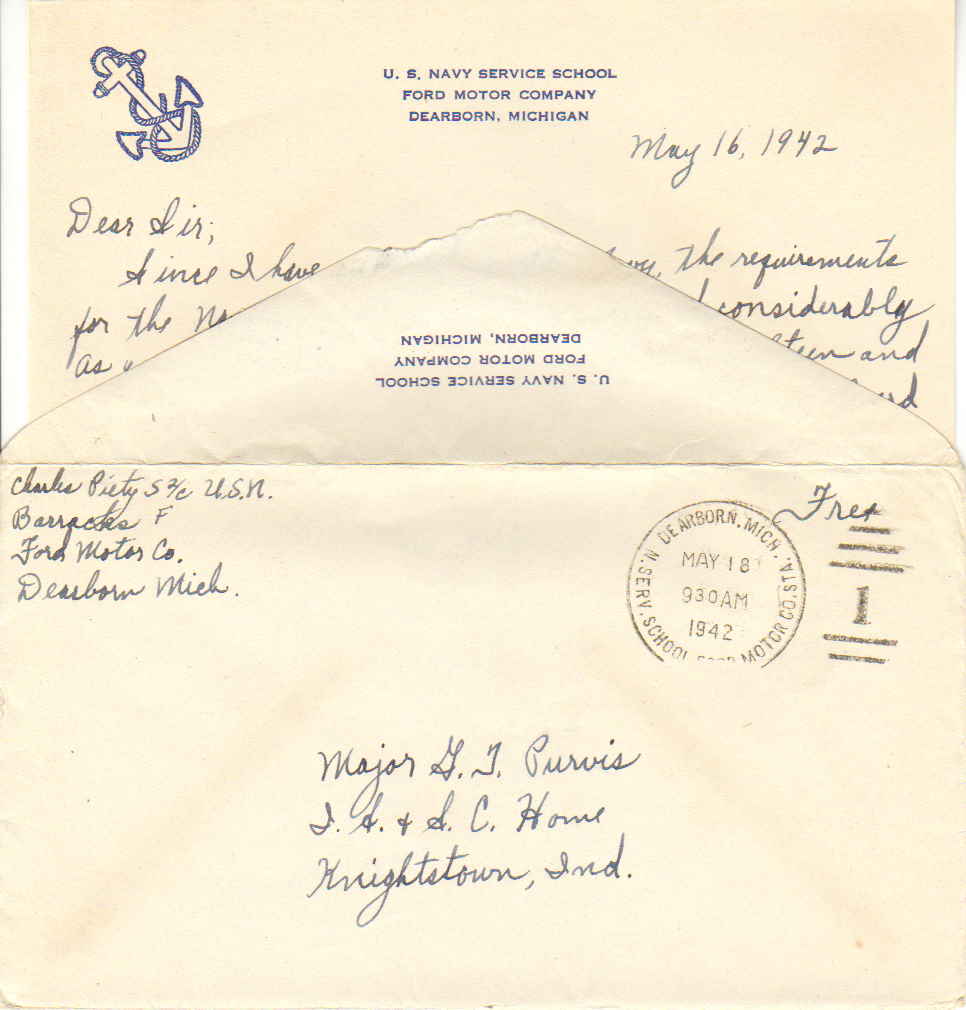 U. S. NAVY SERVICE SCHOOL
FORD MOTOR COMPANY
DEARBORN, MICHIGAN
May 16, 1942
Dear Sir;
Since I have you, the requirements
for the considerably
as and
U. S. NAVY SERVICE SCHOOL
FORD MOTOR COMPANY
DEARBORN, MICHIGAN
Charles Piety S 2/c U.S.N.
Barracks F
Ford Motor Co.
Dearborn Mich.
Free
N. SERV. SCHOOL FORD MOTOR CO. STA. DEARBORN, MICH.
MAY 18
930 AM
1942
1
Major G. T. Purvis
I. S. & S. C. Home
Knightstown, Ind.